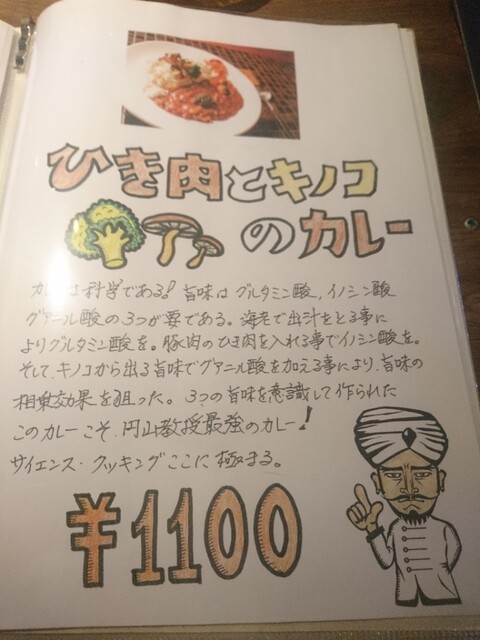 ひき肉とキノコ
のカレー
カレーは科学である! 旨味はグルタミン酸、イノシン酸
グアニル酸の3つが要である。海老で出汁をとる事に
よりグルタミン酸を。豚肉のひき肉を入れる事でイノシン酸を。
そして、キノコから出る旨味でグアニル酸を加える事により、旨味の
相乗効果を狙った。3つの旨味を意識して作られた
このカレーこそ、円山教授最強のカレー!
サイエンス・クッキングここに極まる。
¥1100